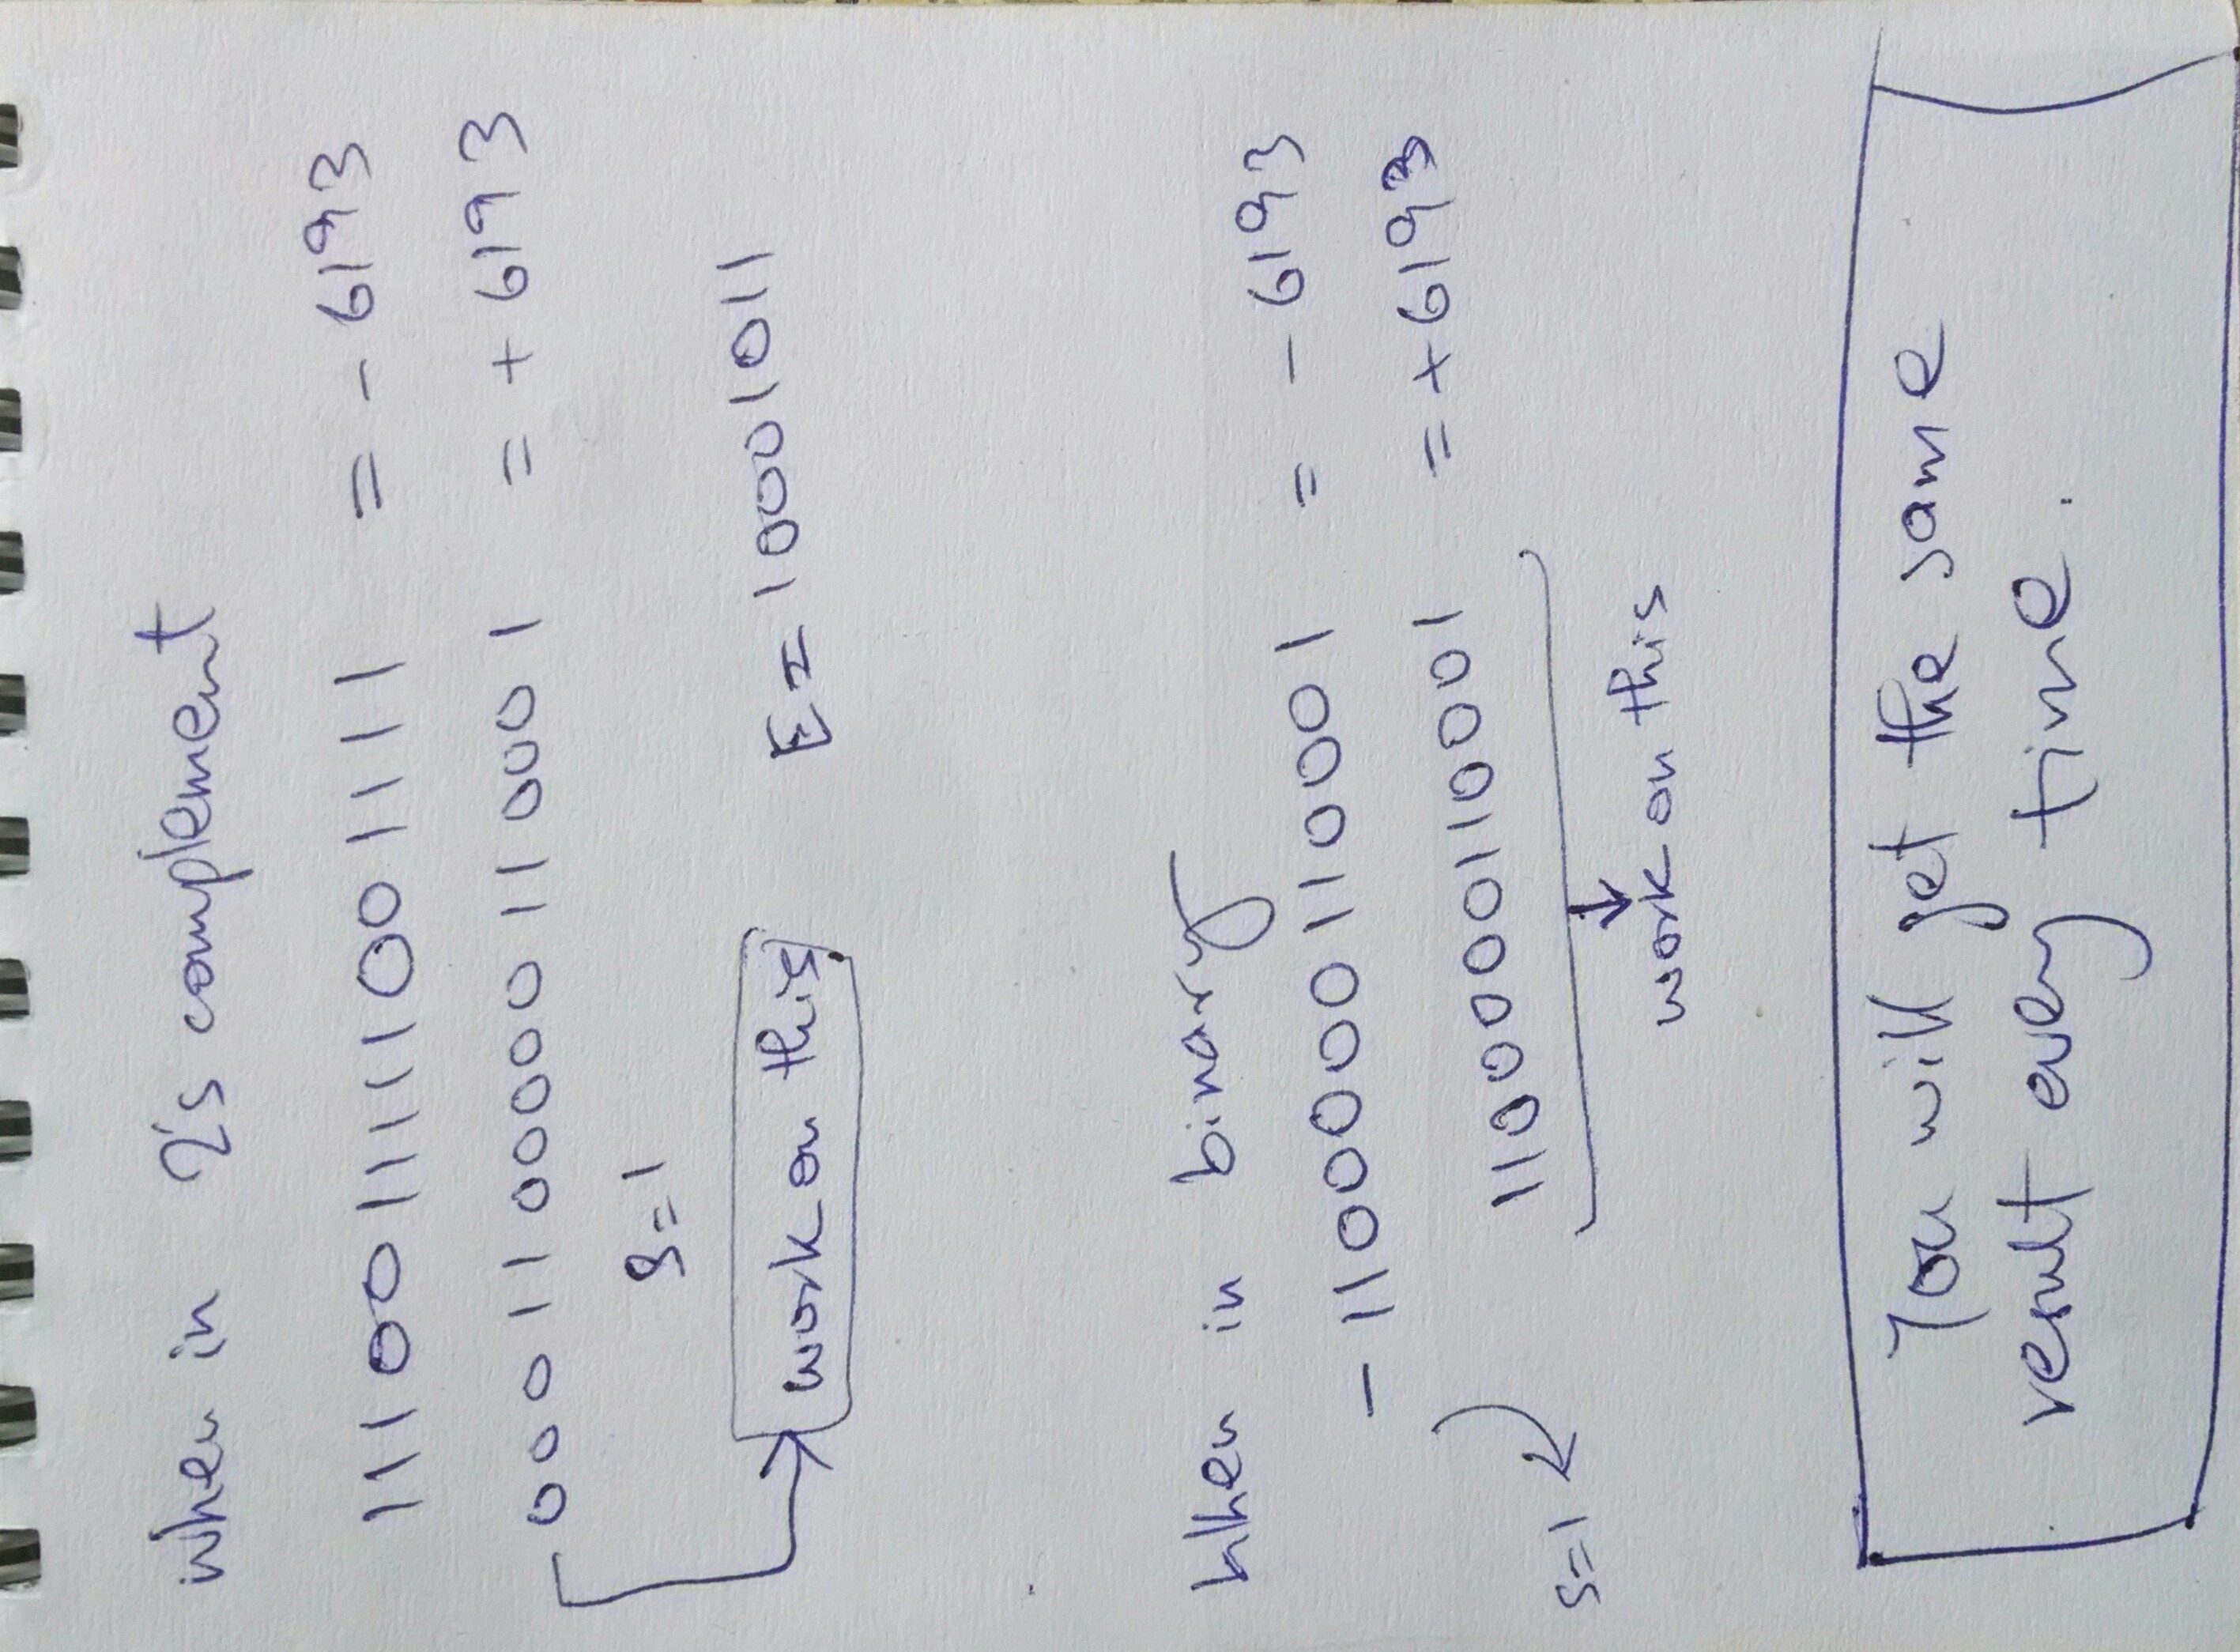 when in 2's complement
1110011111001111 = - 6193
0001100000110001 = + 6193
S=1
work on this
E = 10001011
When in binary
- 1100000110001 = - 6193
1100000110001 = + 6193
S=1
work on this
You will get the same
result every time.